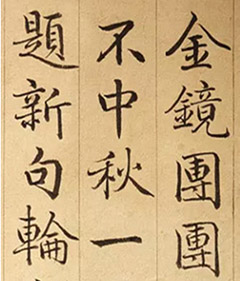 金鏡團團
不中秋一
題新句輪